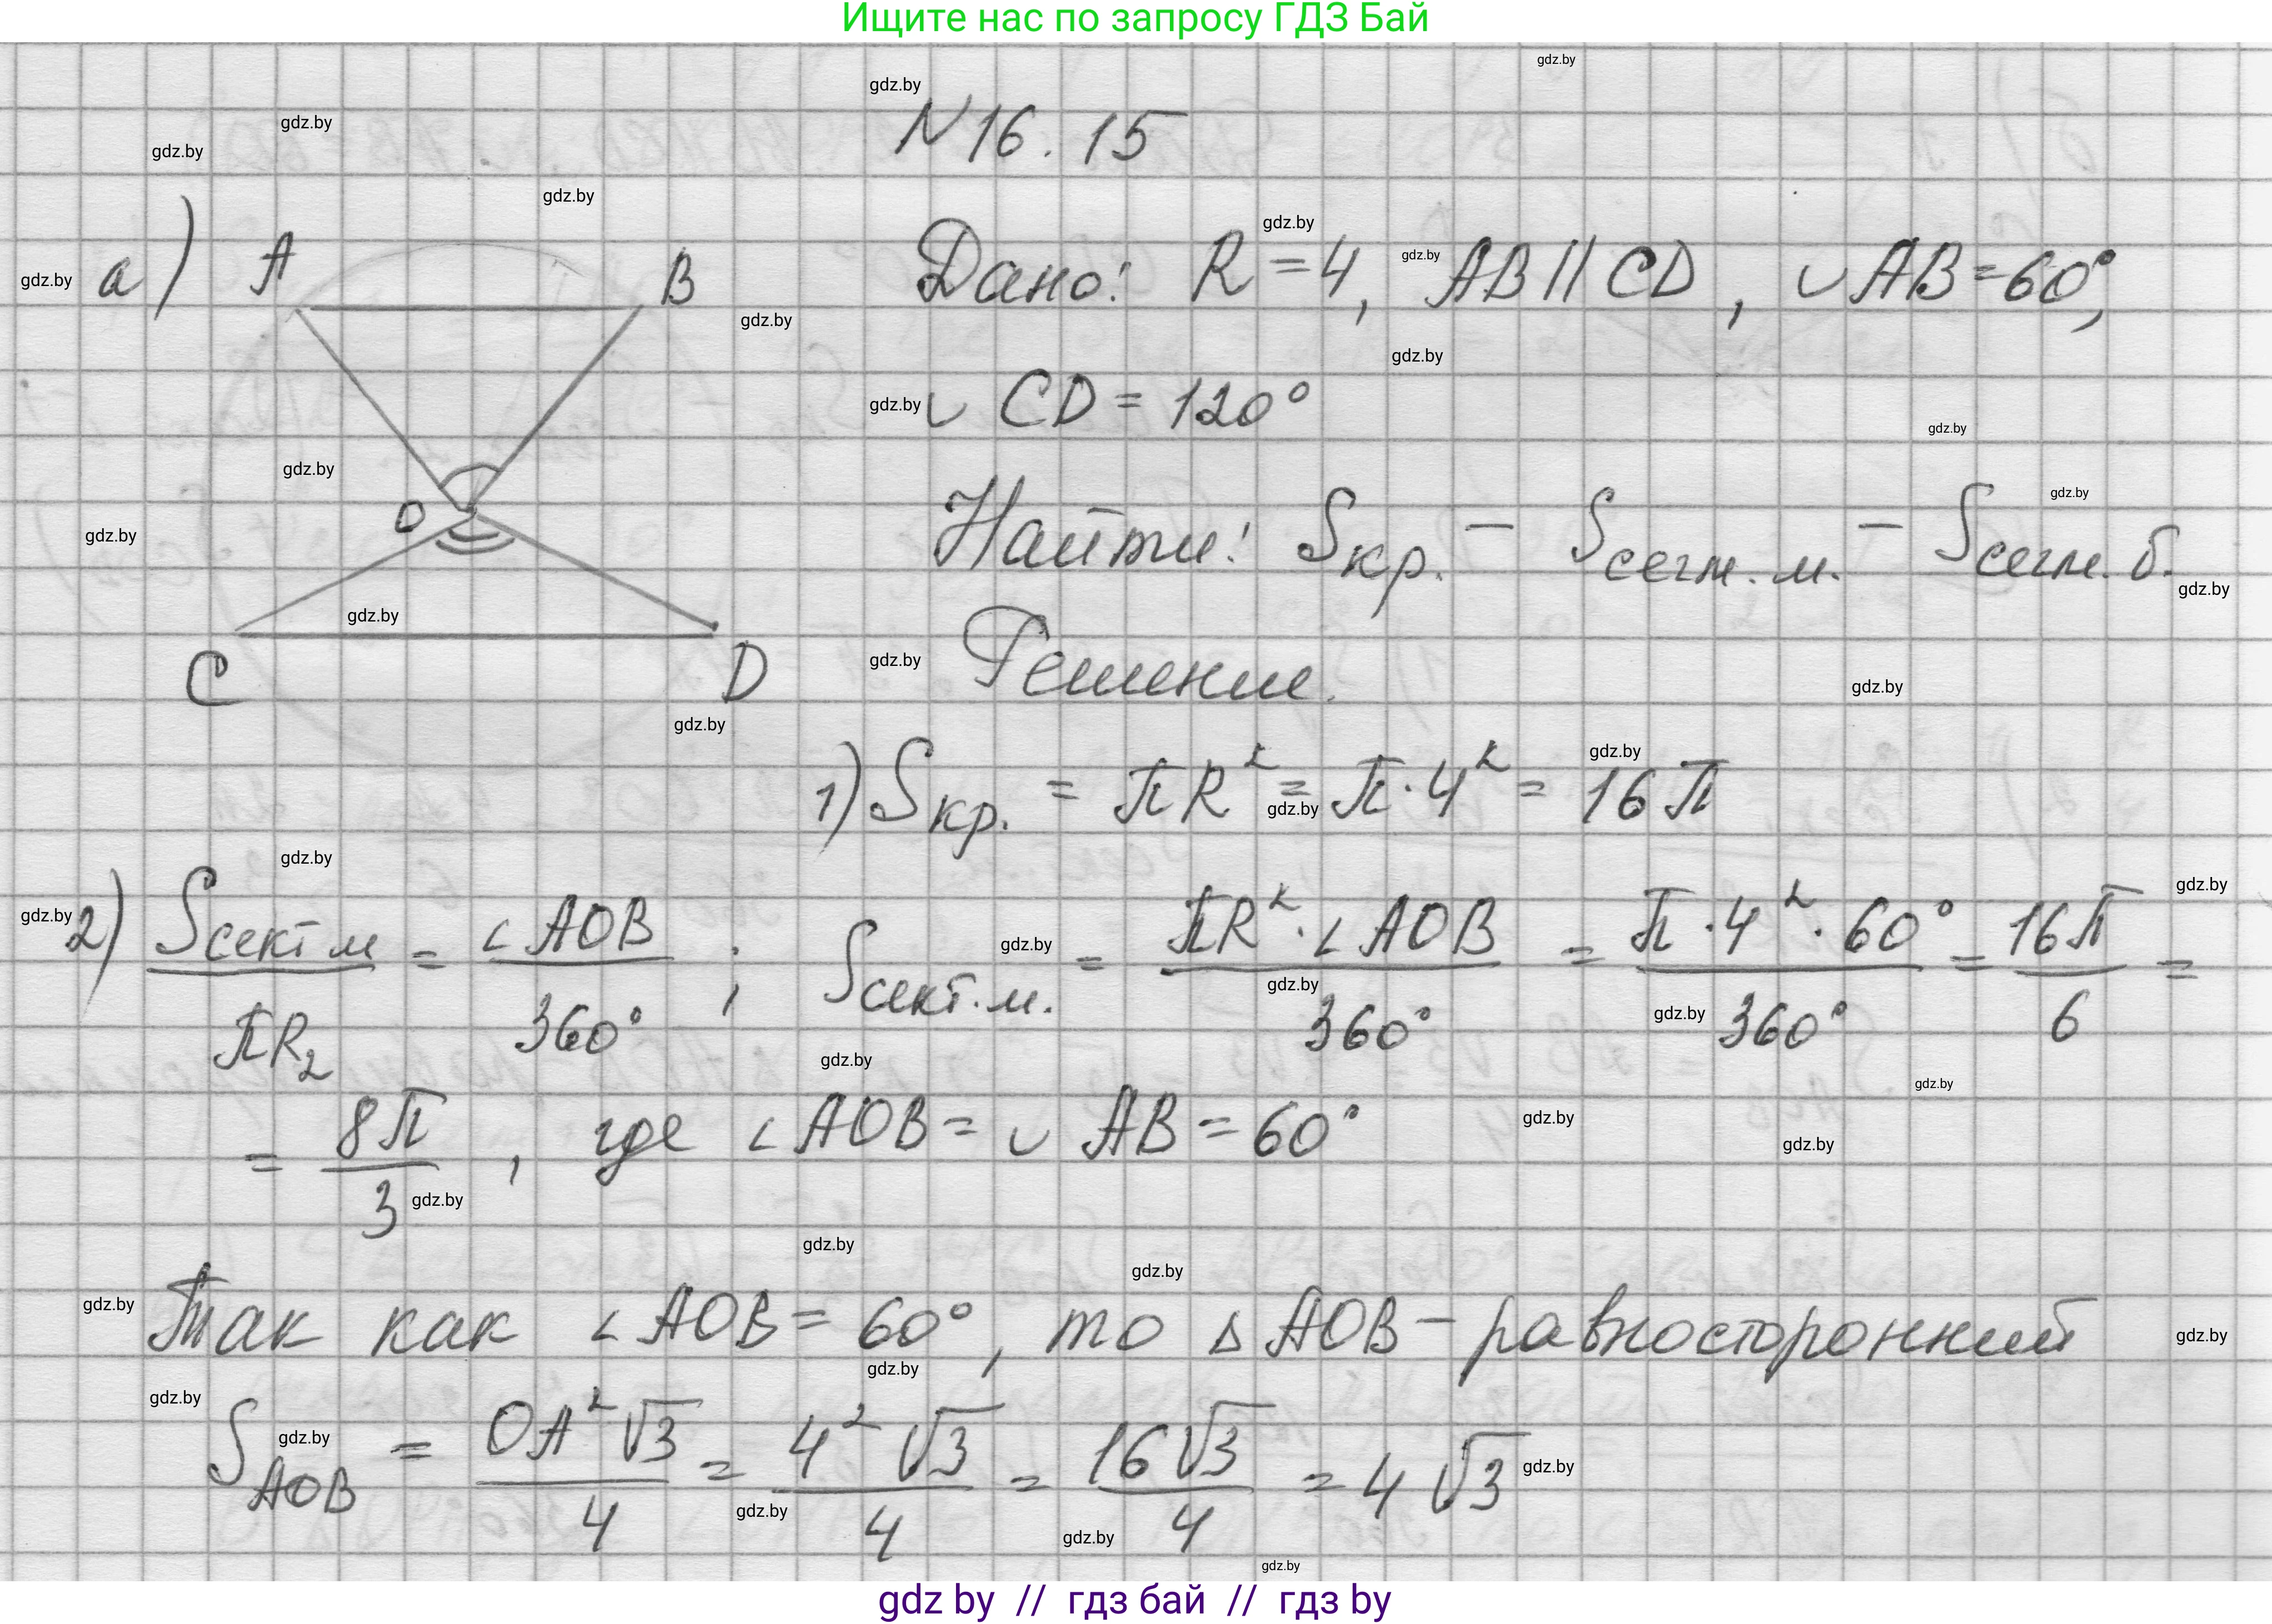 Ищите нас по запросу ГДЗ Бай
N 16.15
а) A B O C D
Дано: R = 4, AB || CD, ∪ AB = 60°,
∪ CD = 120°
Найти: Sкр. − Sсегм. м. − Sсегм. б.
Решение.
1) Sкр. = πR² = π·4² = 16π
2) Sсект м / πR₂ = ∠AOB / 360° ; Sсект. м. = πR²·∠AOB / 360° = π·4²·60° / 360° = 16π / 6 =
= 8π / 3 , где ∠AOB = ∪ AB = 60°
Так как ∠AOB = 60°, то △AOB − равносторонний
S AOB = OA²√3 / 4 = 4²√3 / 4 = 16√3 / 4 = 4√3
gdz by // гдз бай // гдз by